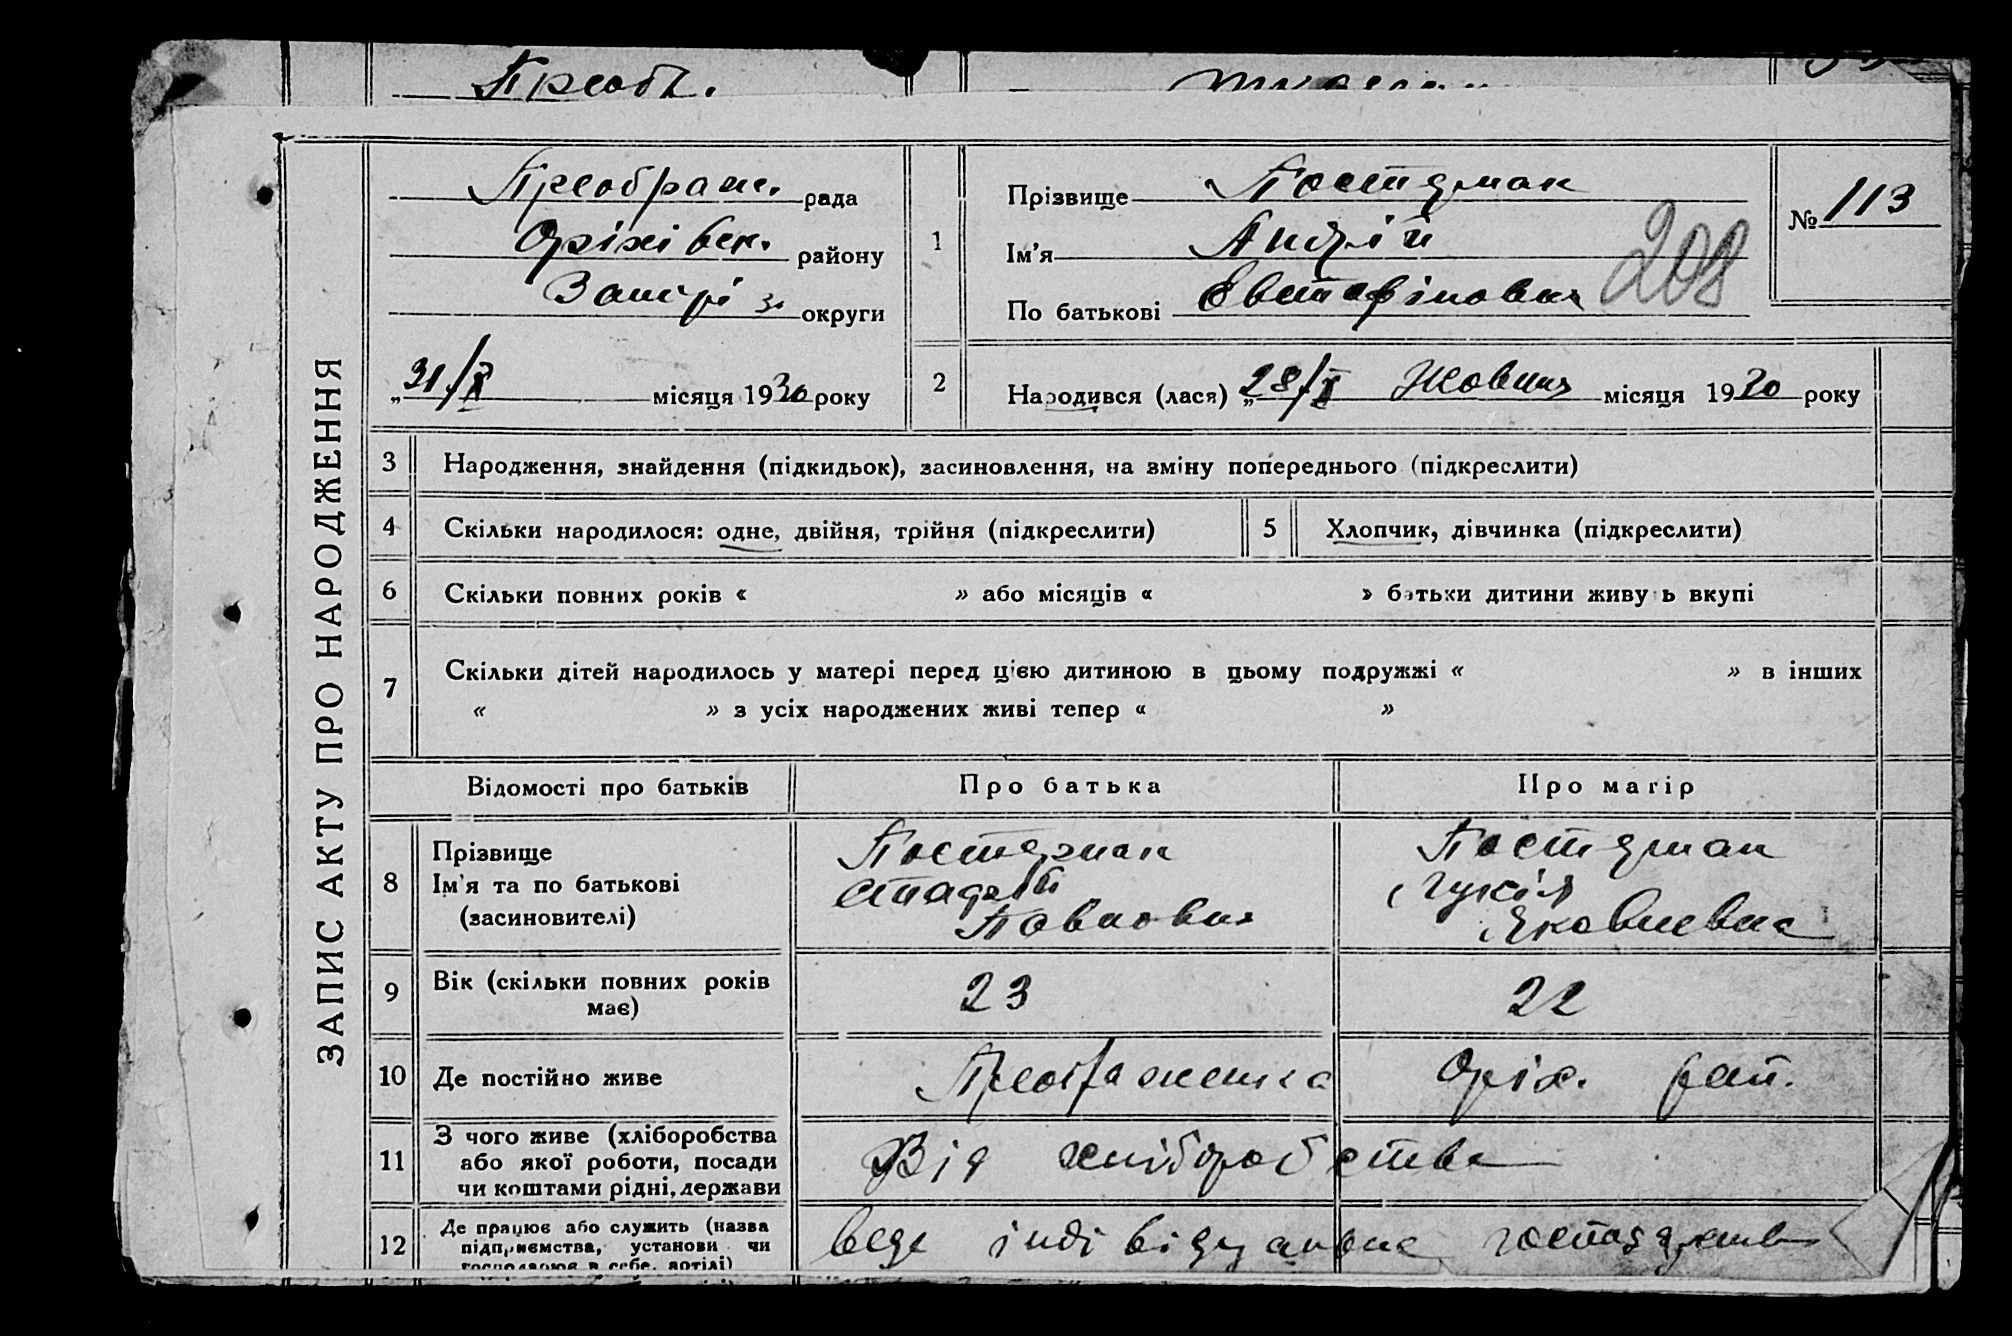 Преоб.
Преображ. рада
Оріхівськ. району
Запорі округи
31/X місяця 1930 року
ЗАПИС АКТУ ПРО НАРОДЖЕННЯ
1
Прізвище Постерман
Ім'я Андрій
По батькові
208
№ 113
2
Народився (лася) „28/X Жовтня місяця 1930 року
3 Народження, знайдення (підкидьок), засиновлення, на зміну попереднього (підкреслити)
4 Скільки народилося: одне, двійня, трійня (підкреслити)
5 Хлопчик, дівчинка (підкреслити)
6 Скільки повних років « » або місяців « » батьки дитини живуть вкупі
7 Скільки дітей народилось у матері перед цією дитиною в цьому подружжі « » в інших
« » з усіх народжених живі тепер « »
Відомості про батьків
Про батька
Про матір
8
Прізвище
Ім'я та по батькові
(засиновителі)
Павлович
Яковлевна
9 Вік (скільки повних років
має)
23
22
10 Де постійно живе
Преображенка
Оріх. рай.
11
З чого живе (хліборобства
або якої роботи, посади
чи коштами рідні, держави
Від хліборобства
12
Де працює або служить (назва
підприємства, установи чи
господарює в себе, артілі)
веде індівідуальне господарство